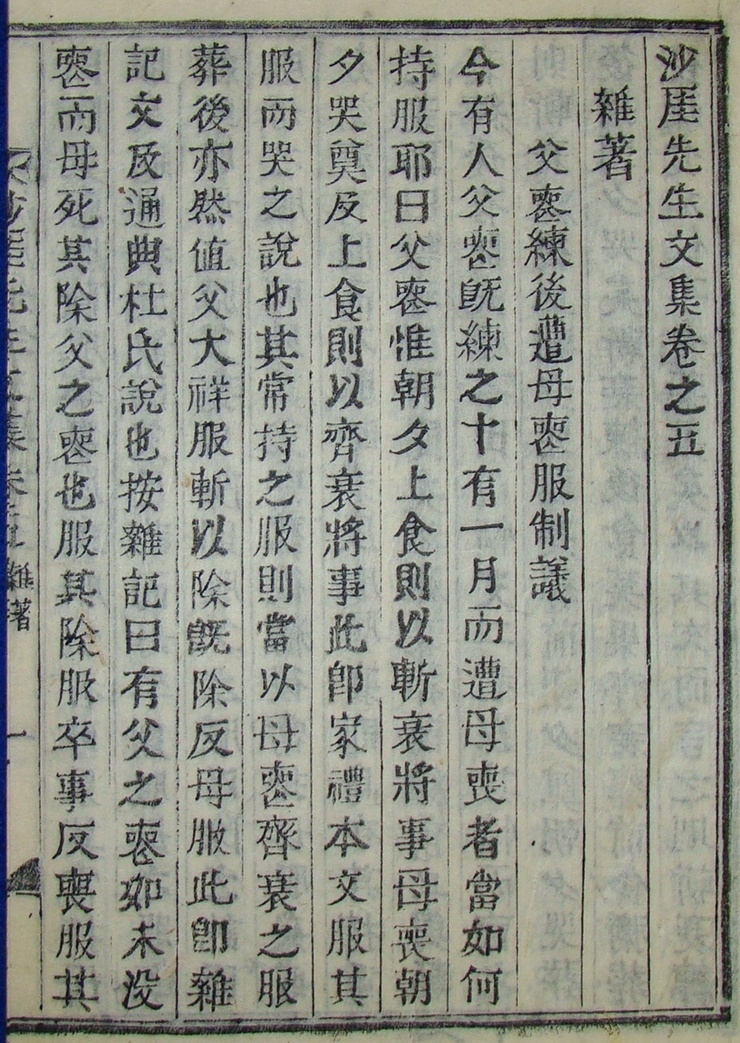 沙厓先生文集卷之五
雜著
父喪練後遭母喪服制議
今有人父喪旣練之十有一月而遭母喪者當如何
持服耶曰父喪惟朝夕上食則以斬衰將事母喪朝
夕哭奠反上食則以齊衰將事此卽家禮本文服其
服而哭之說也其常持之服則當以母喪齊衰之服
葬後亦然値父大祥服斬以除旣除反母服此卽雜
記文及通典杜氏說也按雜記曰有父之喪如未沒
喪而母死其除父之喪也服其除服卒事反喪服其
雜著
一